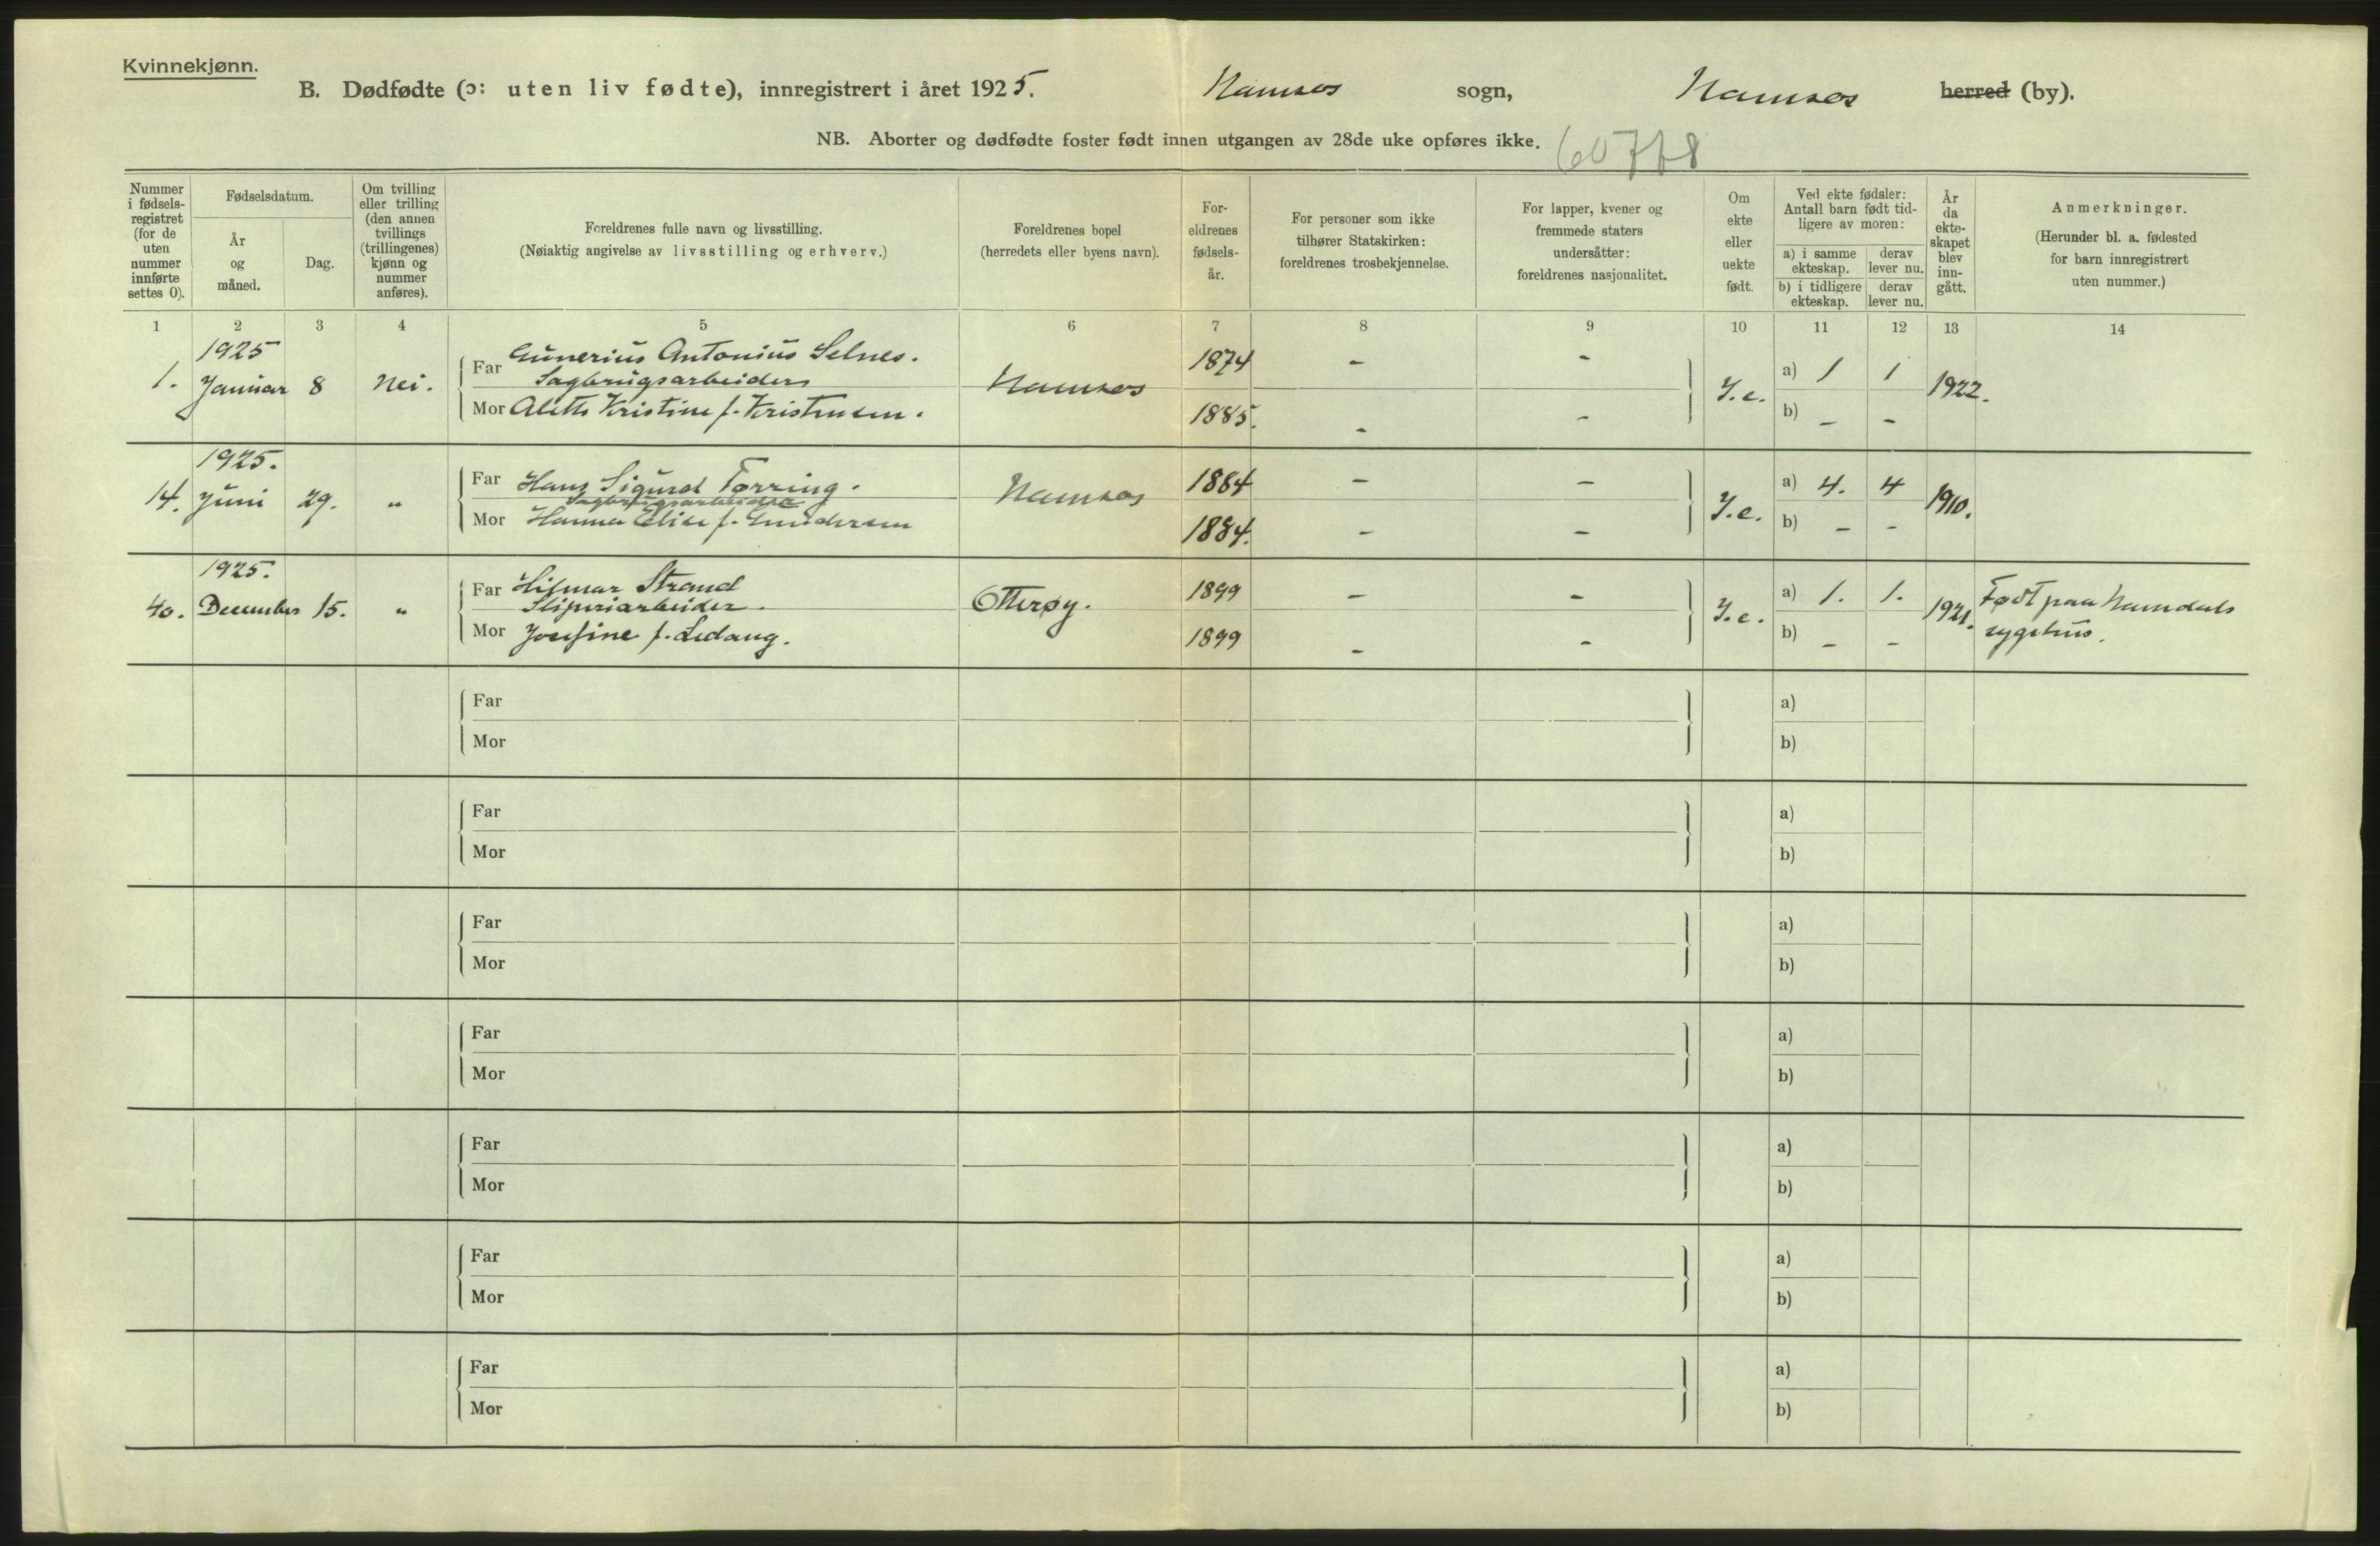 Kvinnekjønn.
B. Dødfødte (ɔ: uten liv fødte), innregistrert i året 1925. Namsos sogn, Namsos herred (by).
NB. Aborter og dødfødte foster født innen utgangen av 28de uke opføres ikke.
Nummer i fødsels-registret (for de uten nummer innførte settes 0).
Fødselsdatum.
År og måned.
Dag.
Om tvilling eller trilling (den annen tvillings (trillingenes) kjønn og nummer anføres).
Foreldrenes fulle navn og livsstilling.
(Nøiaktig angivelse av livsstilling og erhverv.)
Foreldrenes bopel
(herredets eller byens navn).
For-eldrenes fødsels-år.
For personer som ikke tilhører Statskirken: foreldrenes trosbekjennelse.
For lapper, kvener og fremmede staters undersåtter: foreldrenes nasjonalitet.
Om ekte eller uekte født.
Ved ekte fødsler: Antall barn født tid-ligere av moren:
a) i samme ekteskap.
derav lever nu.
b) i tidligere ekteskap.
derav lever nu.
År da ekte-skapet blev inn-gått.
Anmerkninger.
(Herunder bl. a. fødested for barn innregistrert uten nummer.)
1 2 3 4 5 6 7 8 9 10 11 12 13 14
1925
Far Gunerius Antonius Selnes. 1874 - -
1. Januar 8 Nei. Sagbrugsarbeider Namsos I.e. a) 1 1 1922.
Mor Alette Kristine f. Kristensen. 1885. - - b) - -
1925.
Far Hans Sigurd Tørring. 1884 - -
14. Juni 29. " Sagbrugsarbeider Namsos I.e. a) 4. 4 1910.
Mor Hanna Elise f. Gundersen 1884. - - b) - -
1925.
Far Hilmar Strand 1899 - -
40. December 15. " Sliperiarbeider. Otterøy. I.e. a) 1. 1. 1921. Født paa Namdals
Mor Josefine f. Ledang. 1899 - - b) - - sygehus.
Far a)
Mor b)
Far a)
Mor b)
Far a)
Mor b)
Far a)
Mor b)
Far a)
Mor b)
Far a)
Mor b)
Far a)
Mor b)